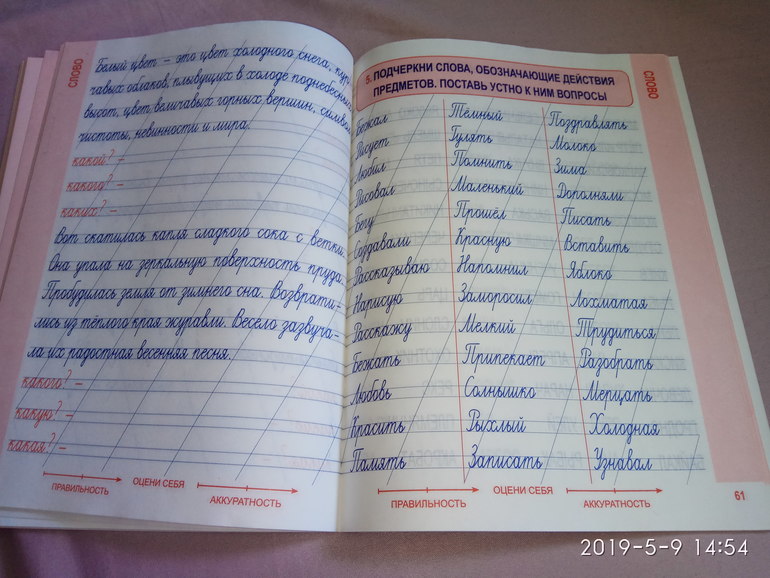 СЛОВО
Белый цвет – это цвет холодного снега, кур-
чавых облаков, плывущих в холоде поднебесных
высот, цвет величавых горных вершин, символ
чистоты, невинности и мира.
какой? –
какого? –
каких? –
Вот скатилась капля сладкого сока с ветки.
Она упала на зеркальную поверхность пруда.
Пробудилась земля от зимнего сна. Возврати=
лись из тёплого края журавли. Весело зазвуча-
ла их радостная весенняя песня.
какого? –
какую? –
какая? –
ПРАВИЛЬНОСТЬ
ОЦЕНИ СЕБЯ
АККУРАТНОСТЬ
СЛОВО
5. ПОДЧЕРКНИ СЛОВА, ОБОЗНАЧАЮЩИЕ ДЕЙСТВИЯ
ПРЕДМЕТОВ. ПОСТАВЬ УСТНО К НИМ ВОПРОСЫ
Бежал Тёмный Поздравлять
Рисует Гулять Молоко
Любил Помнить Зима
Рисовал Маленький Дополняли
Бегу Прошёл Писать
Создавали Красную Вставить
Рассказываю Напомнил Яблоко
Нарисую Заморосил Лохматая
Расскажу Мелкий Трудиться
Бежать Припекает Разобрать
Любовь Солнышко Мерцать
Красить Рыхлый Холодная
Память Записать Узнавал
ПРАВИЛЬНОСТЬ
ОЦЕНИ СЕБЯ
АККУРАТНОСТЬ
61
2019-5-9 14:54